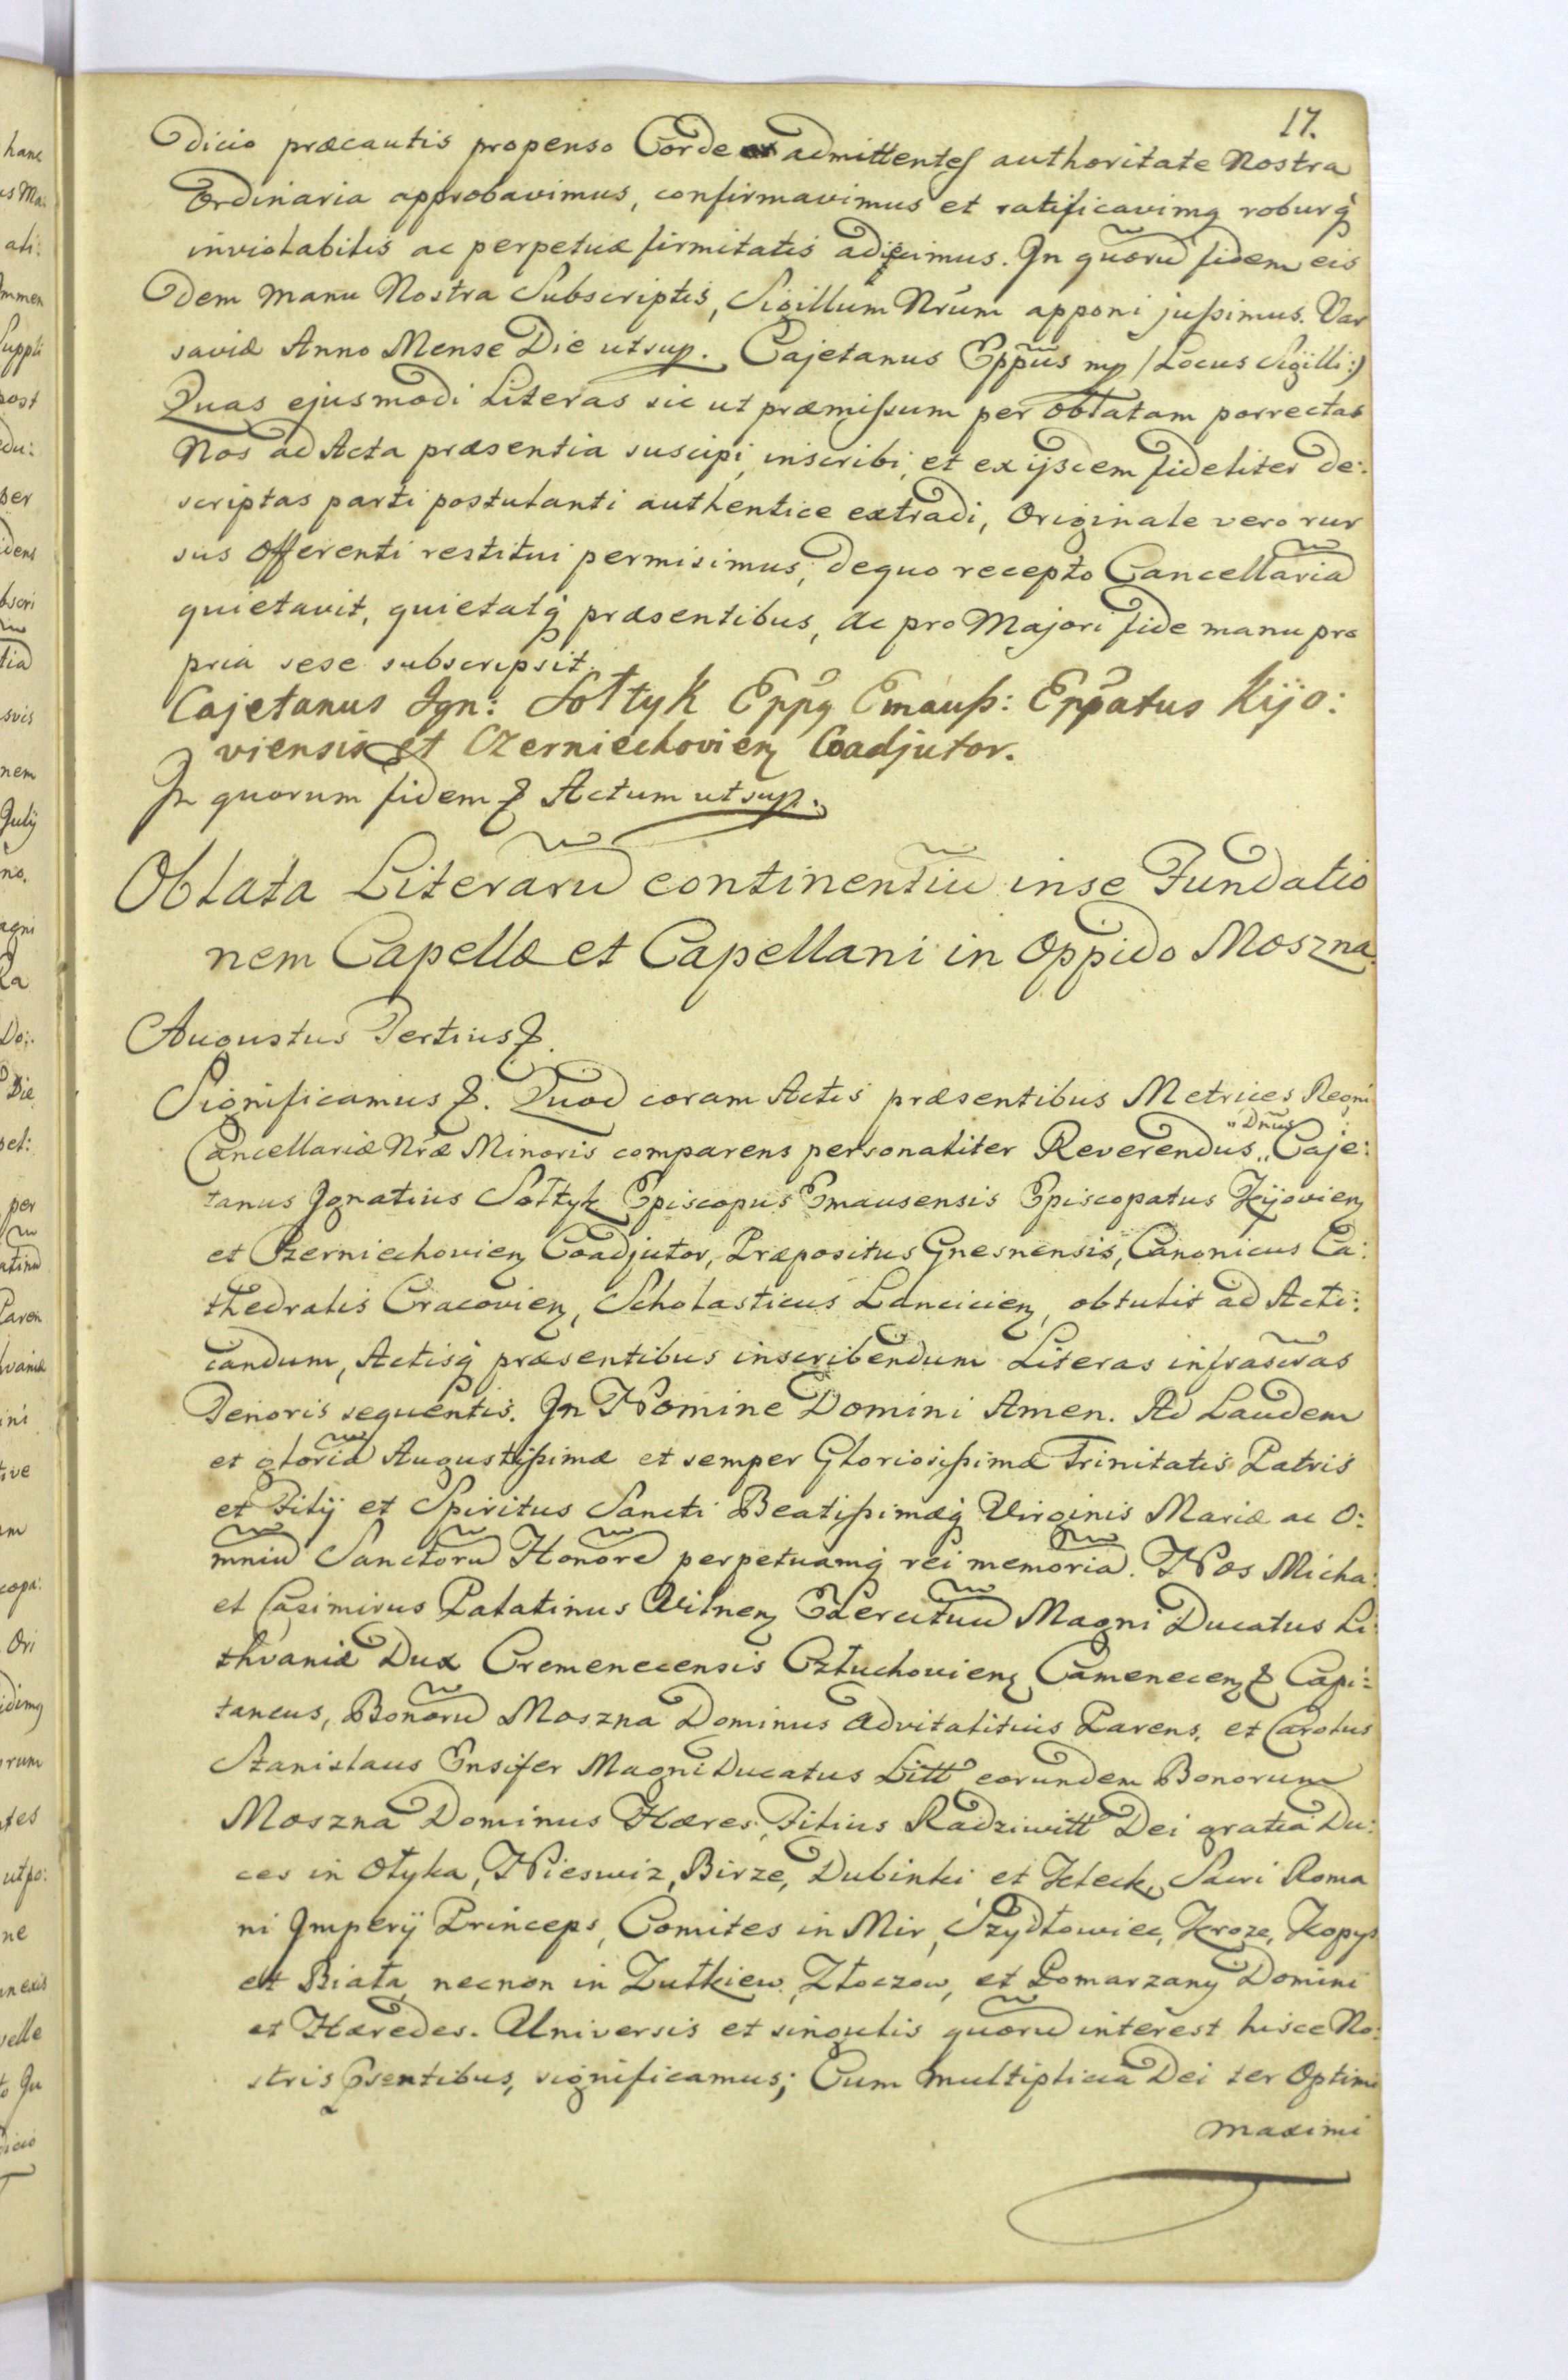 17.
dicio præcautis propenso Corde admittentes authoritate Nostra
Ordinaria approbavimus, confirmavimus et ratificavimq roburq́
inviolabilis ac perpetuæ firmitatis adjicimus. In quorū fidem eis
dem manu Nostra Subscriptis, Sigillum Nrūm apponi jussimus. Var
saviæ Anno Mense Die utsup. Cajetanus Eppūs mp (Locus Sigilli:)
Quas ejusmodi Literas sic ut præmissum per oblatam porrectas
Nos ad Acta præsentia suscipi, inscribi, et ex ijsdem fideliter de:
scriptas parti postulanti authentice extradi, Originale vero rur
sus Offerenti restitui permisimus, dequo recepto Cancellariā
quietavit, quietatq́ præsentibus, ac pro Majori fide manu pro
pria sese subscripsit.
Cajetanus Ign: Sołtyk Eppq Emauss: Eppatus Kijo:
viensis et Czerniechovien Coadjutor.
In quorum fidem &. Actum utsup.
Oblata Literarū continentiū inse Fundatio
nem Capellæ et Capellani in Oppido Moszna.
Augustus Tertius &.
Significamus &. Quod coram Actis præsentibus Metrices Regni
Cancellariæ Nræ Minoris comparens personaliter Reverendus „Dnūs„ Caje:
tanus Ignatius Sołtyk Episcopus Emausensis Episcopatus Kijovien
et Czerniechovien Coadjutor, Præpositus Gnesnensis, Canonicus Ca:
thedralis Cracovien, Scholasticus Lancicien, obtulit ad Acti:
candum, Actisq́ præsentibus inscribendum Literas infrascrās
Tenoris sequentis. In Nomine Domini Amen. Ad Laudem
et gloriā Augustissimæ et semper Gloriosissimæ Trinitatis Patris
et Filij et Spiritus Sancti Beatissimæq́ Virginis Mariæ ac O:
mniū Sanctorū Honorē perpetuamq́ rei memoriā. Nos Micha:
el Casimirus Palatinus Vilnen Exercituū Magni Ducatus Li:
thvaniæ Dux Cremenecensis Człuchovien Camenecen & Capi:
taneus, Bonorū Moszna Dominus Advitalitius Parens, et Carolus
Stanislaus Ensifer Magni Ducatus Litt eorundem Bonorum
Moszna Dominus Hæres, Filius Radziwiłł Dei gratia Du:
ces in Ołyka, Nieswiz, Birze, Dubinki et Kleck, Sacri Roma
ni Imperij Princeps, Comites in Mir, Szydłowiec, Kroze, Kopys
et Biała, necnon in Zułkiew, Złoczow, et Pomarzany Domini
et Hæredes. Universis et singulis quorū interest hisce No:
stris psentibus, significamus; Cum multiplicia Dei ter Optimi
maximi